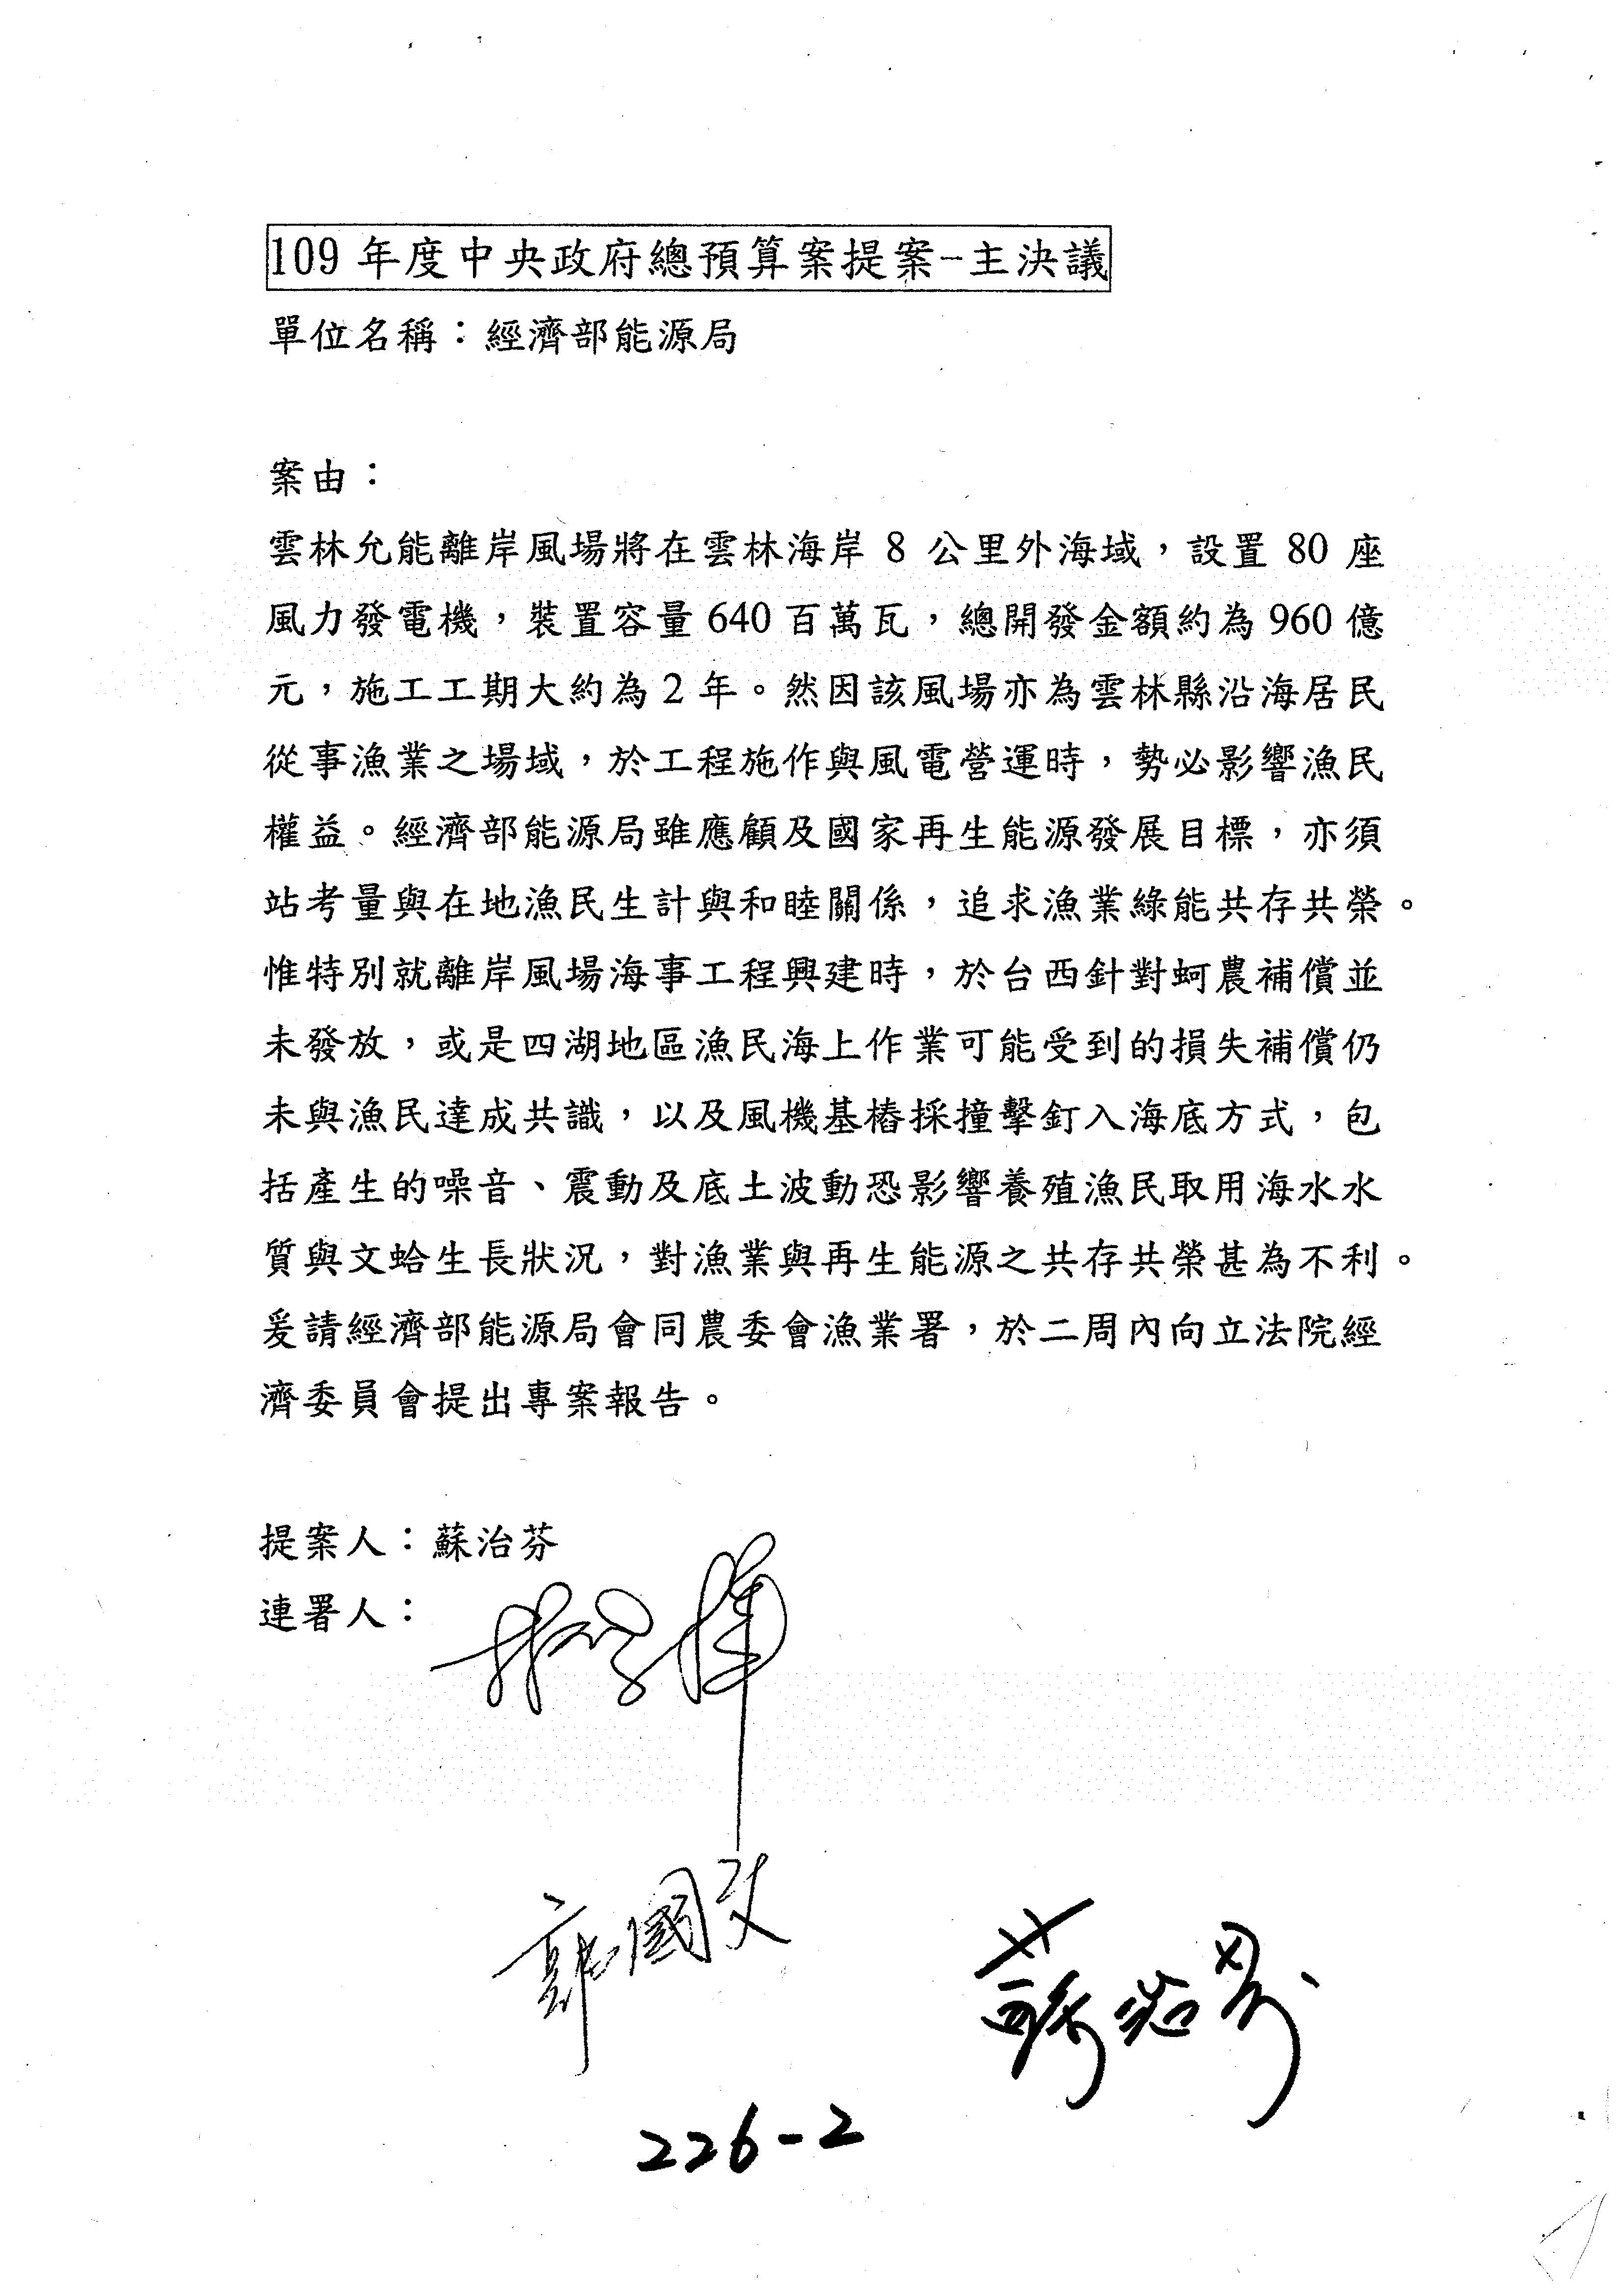 109 年度中央政府總預算案提案-主決議
單位名稱：經濟部能源局
案由：
雲林允能離岸風場將在雲林海岸 8 公里外海域，設置 80 座
風力發電機，裝置容量 640 百萬瓦，總開發金額約為 960 億
元，施工工期大約為 2 年。然因該風場亦為雲林縣沿海居民
從事漁業之場域，於工程施作與風電營運時，勢必影響漁民
權益。經濟部能源局雖應顧及國家再生能源發展目標，亦須
站考量與在地漁民生計與和睦關係，追求漁業綠能共存共榮。
惟特別就離岸風場海事工程興建時，於台西針對蚵農補償並
未發放，或是四湖地區漁民海上作業可能受到的損失補償仍
未與漁民達成共識，以及風機基樁採撞擊釘入海底方式，包
括產生的噪音、震動及底土波動恐影響養殖漁民取用海水水
質與文蛤生長狀況，對漁業與再生能源之共存共榮甚為不利。
爰請經濟部能源局會同農委會漁業署，於二周內向立法院經
濟委員會提出專案報告。
提案人：蘇治芬
連署人：
郭國文
蘇治芬
226-2